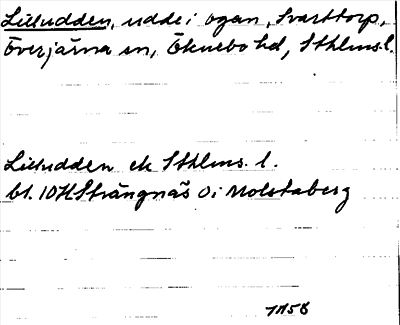 Lilludden, udde i ogan, Svarttorp,
Överjärna sn, Öknebo hd, Sthlms. l.
Lilludden ek Sthlms. l.
bl. 10H Strängnäs 0i Molstaberg